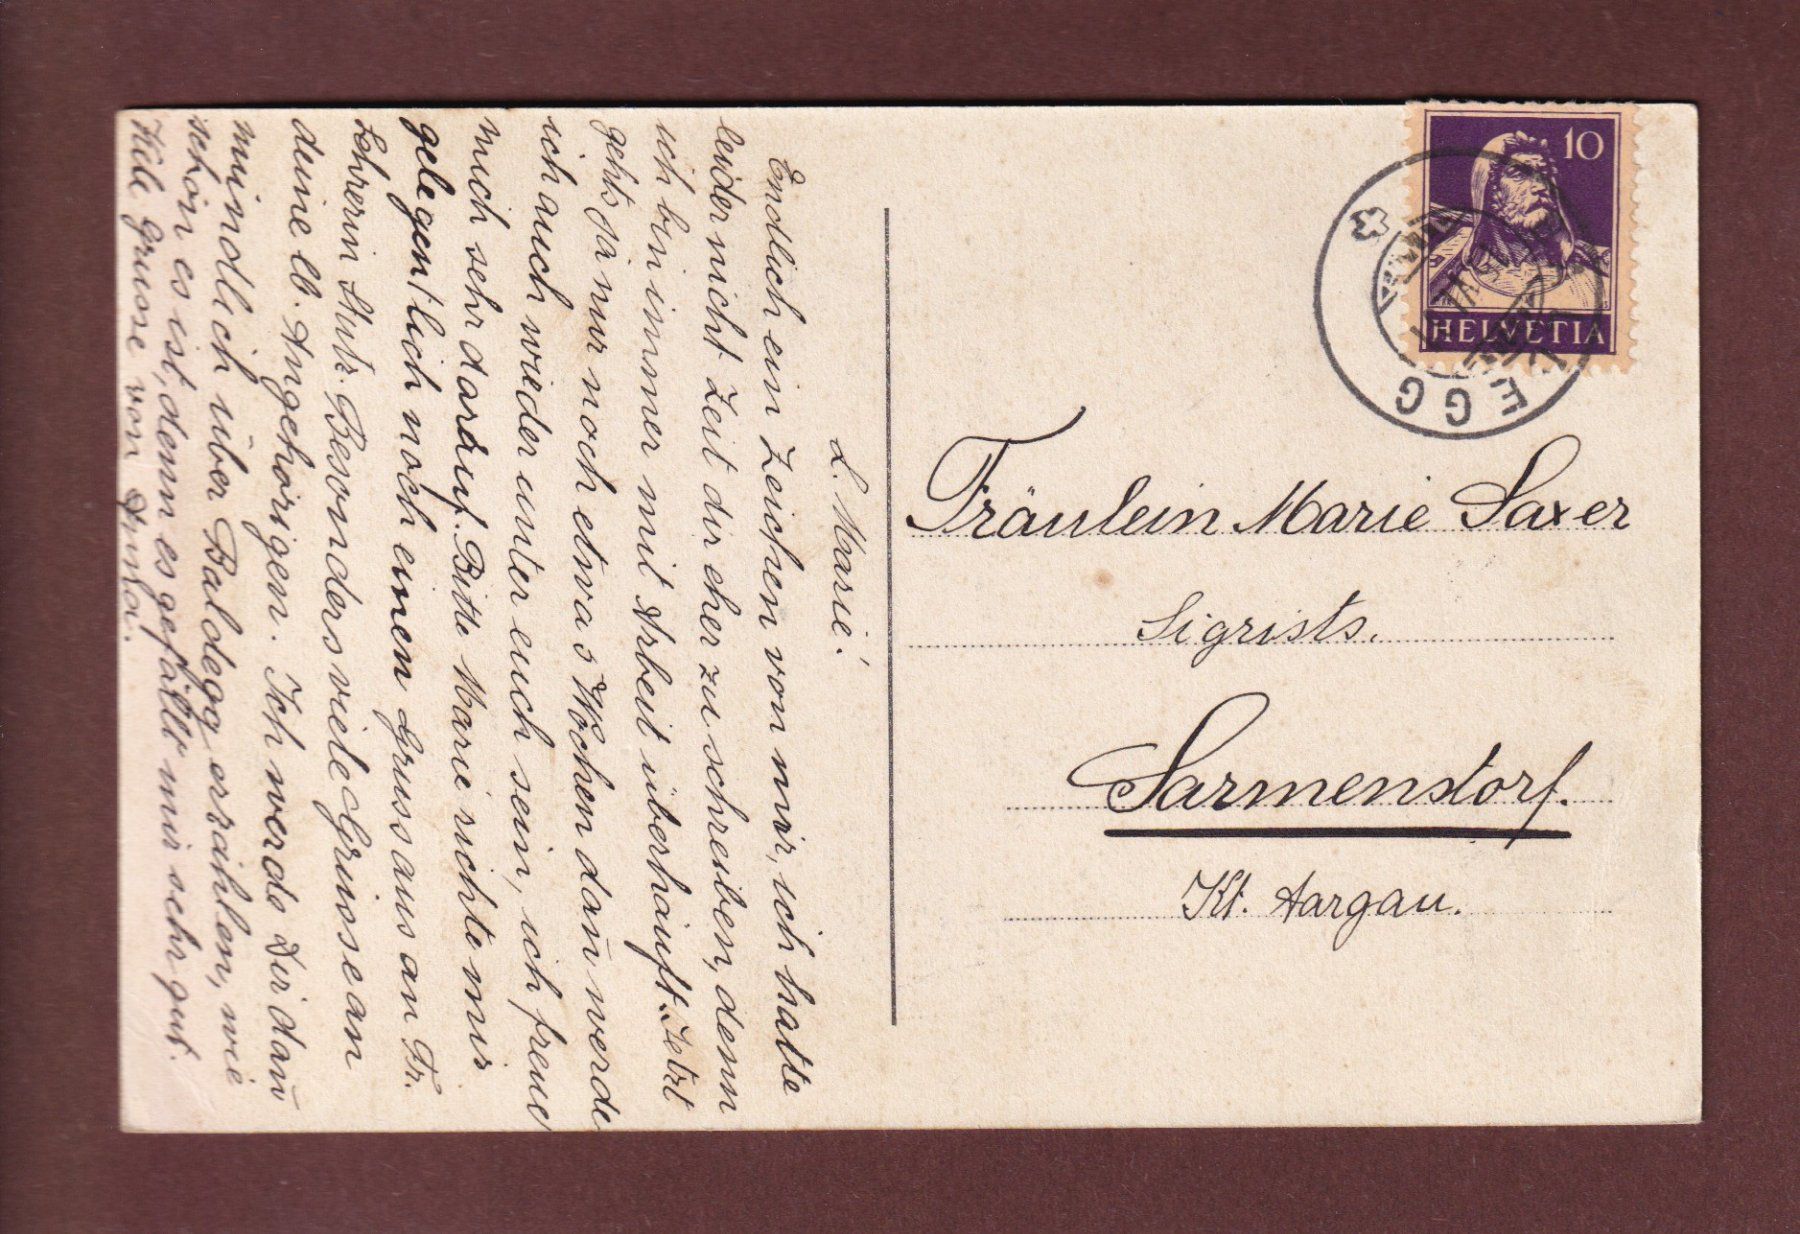 L. Marie!
Endlich ein Zeichen von mir, ich hatte
leider nicht Zeit dir eher zu schreiben, denn
ich bin immer mit Arbeit überhäuft. Jetzt
gehts ja nur noch etwas Wochen dañ werde
ich auch wieder unter euch sein, ich freue
mich sehr darauf. Bitte Marie richte mir
gelegentlich noch einen Gruss aus an Fr.
Lehrerin Stutz. Besonders viele Grüsse an
deine lb. Angehörigen. Ich werde Dir dañ
mündlich über Baldegg erzählen, wie
schön es ist, denn es gefällt mir sehr gut.
Viele Grüsse von
10
HELVETIA
EGG
Fräulein Marie Saxer
Sigrists.
Sarmendorf.
Kt. Aargau.